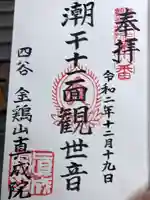 奉拝
令和二年十二月十九日
潮干十一面観世音
四谷 金鶏山真成院